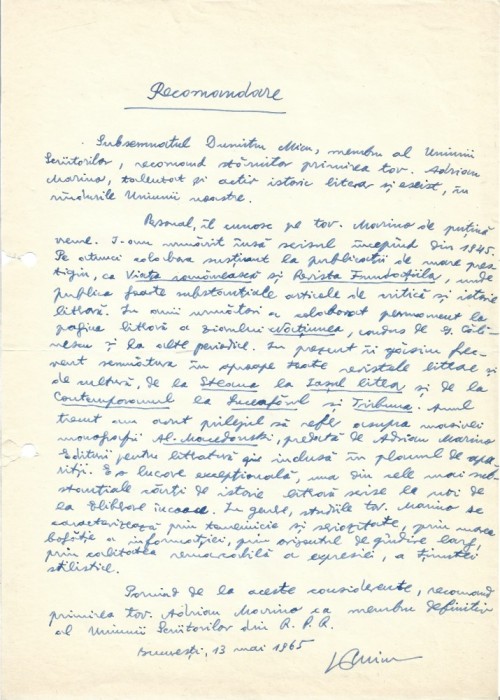 Recomandare
Subsemnatul Dumitru Micu, membru al Uniunii
Scriitorilor, recomand stăruitor primirea tov. Adrian
Marino, talentat și activ istoric literar și eseist, în
rîndurile Uniunii noastre.
Personal, îl cunosc pe tov. Marino de puțină
vreme. I-am urmărit însă scrisul începînd din 1945.
Pe atunci colabora susținut la publicații de mare pres-
tigiu, ca Viața românească și Revista Fundațiilor, unde
publica foarte substanțiale articole de critică și istorie
literară. În anii următori a colaborat permanent la
pagina literară a ziarului Națiunea, condus de G. Căli-
nescu și la alte periodice. În prezent îi găsim frec-
vent semnătura în aproape toate revistele literare și
de cultură, de la Steaua la Iașul literar și de la
Contemporanul la Luceafărul și Tribuna. Anul
trecut am avut prilejul să refer asupra masivei
monografii Al. Macedonski, predată de Adrian Marino
Editurii pentru literatură și inclusă în planul de apa-
riții. E o lucrare excepțională, una din cele mai sub-
stanțiale cărți de istorie literară scrise la noi de
la Eliberare încoace. În genere, studiile tov. Marino se
caracterizează prin temeinicie și seriozitate, prin marea
bogăție a informației, prin orizontul de gîndire larg,
prin calitatea remarcabilă a expresiei, a ținutei
stilistice.
Pornind de la aceste considerente, recomand
primirea tov. Adrian Marino ca membru definitiv
al Uniunii Scriitorilor din R.P.R.
București, 13 mai 1965